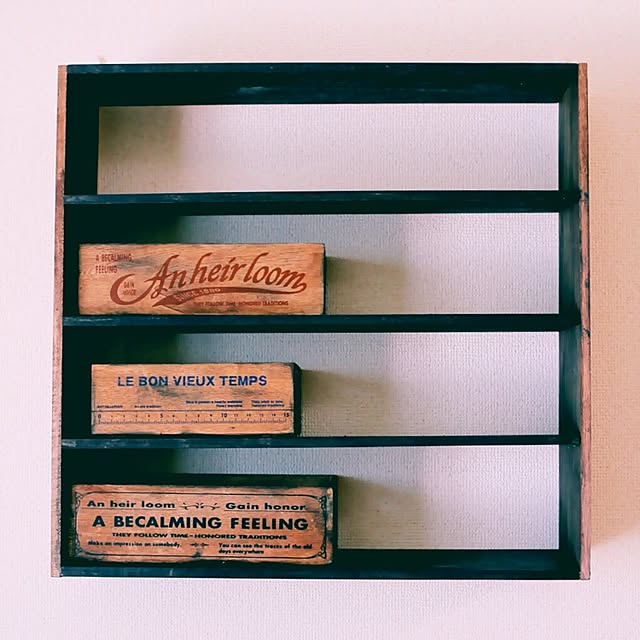 A BECALMING
FEELING
GAIN
HONOR
An heir loom
SINCE.1890
THEY FOLLOW TIME-HONORED TRADITIONS
LE BON VIEUX TEMPS
0 5 10 15
An heir loom Gain honor
A BECALMING FEELING
THEY FOLLOW TIME-HONORED TRADITIONS
Make an impression on somebody. You can see the traces of the old
days everywhere